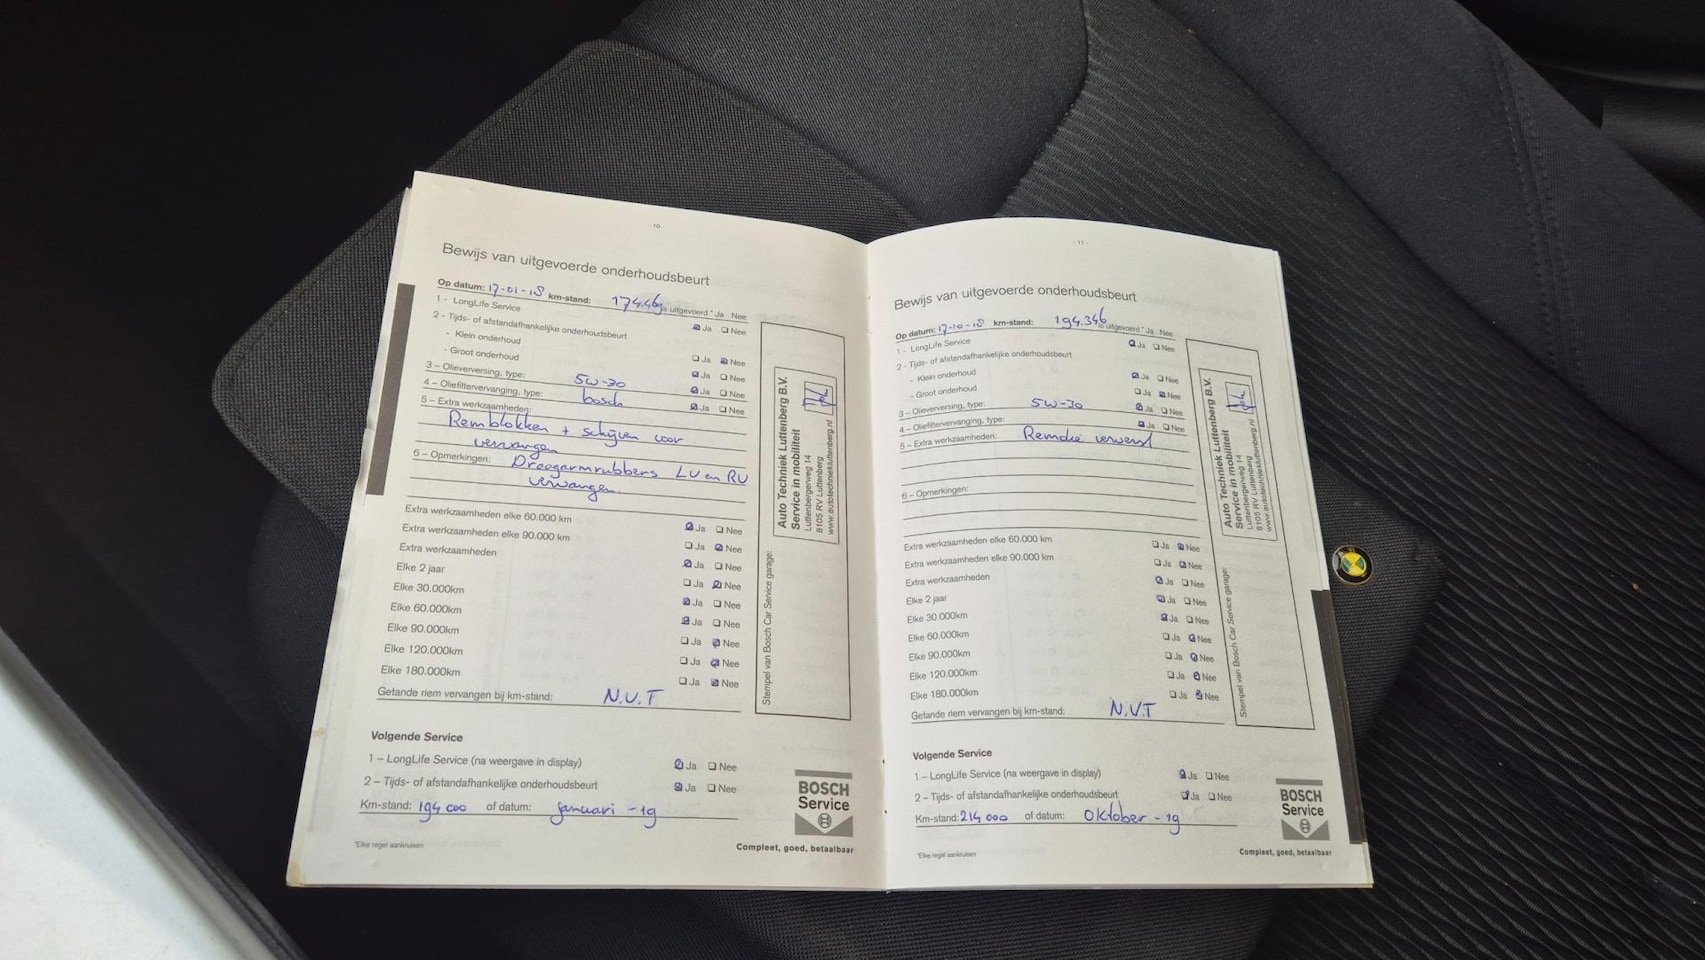 - 10 -
Bewijs van uitgevoerde onderhoudsbeurt
Op datum: 17-01-18 km-stand: 174.469 is uitgevoerd * Ja Nee
1 - LongLife Service Ja Nee
2 - Tijds- of afstandafhankelijke onderhoudsbeurt
- Klein onderhoud Ja Nee
- Groot onderhoud Ja Nee
3 – Olieverversing, type: 5W-30 Ja Nee
4 – Oliefiltervervanging, type: bosch Ja Nee
5 – Extra werkzaamheden:
Remblokken + schijven voor
vervangen
6 – Opmerkingen: Draagarmrubbers LV en RV
vervangen.
Extra werkzaamheden elke 60.000 km Ja Nee
Extra werkzaamheden elke 90.000 km Ja Nee
Extra werkzaamheden Ja Nee
Elke 2 jaar Ja Nee
Elke 30.000km Ja Nee
Elke 60.000km Ja Nee
Elke 90.000km Ja Nee
Elke 120.000km Ja Nee
Elke 180.000km Ja Nee
Getande riem vervangen bij km-stand: N.V.T
Stempel van Bosch Car Service garage:
Auto Techniek Luttenberg B.V.
Service in mobiliteit
Luttenbergerweg 14
8105 RV Luttenberg
www.autotechniekluttenberg.nl
Volgende Service
1 – LongLife Service (na weergave in display) Ja Nee
2 – Tijds- of afstandafhankelijke onderhoudsbeurt Ja Nee
Km-stand: 194 000 of datum: januari - 19
*Elke regel aankruisen
BOSCH
Service
Compleet, goed, betaalbaar
- 11 -
Bewijs van uitgevoerde onderhoudsbeurt
Op datum: 17-10-18 km-stand: 194.346 is uitgevoerd * Ja Nee
1 - LongLife Service Ja Nee
2 - Tijds- of afstandafhankelijke onderhoudsbeurt
- Klein onderhoud Ja Nee
- Groot onderhoud Ja Nee
3 – Olieverversing, type: 5W-30 Ja Nee
4 – Oliefiltervervanging, type: Ja Nee
5 – Extra werkzaamheden:
6 – Opmerkingen:
Extra werkzaamheden elke 60.000 km Ja Nee
Extra werkzaamheden elke 90.000 km Ja Nee
Extra werkzaamheden Ja Nee
Elke 2 jaar Ja Nee
Elke 30.000km Ja Nee
Elke 60.000km Ja Nee
Elke 90.000km Ja Nee
Elke 120.000km Ja Nee
Elke 180.000km Ja Nee
Getande riem vervangen bij km-stand: N.V.T
Stempel van Bosch Car Service garage:
Auto Techniek Luttenberg B.V.
Service in mobiliteit
Luttenbergerweg 14
8105 RV Luttenberg
www.autotechniekluttenberg.nl
Volgende Service
1 – LongLife Service (na weergave in display) Ja Nee
2 – Tijds- of afstandafhankelijke onderhoudsbeurt Ja Nee
Km-stand: 214 000 of datum: Oktober - 19
*Elke regel aankruisen
BOSCH
Service
Compleet, goed, betaalbaar